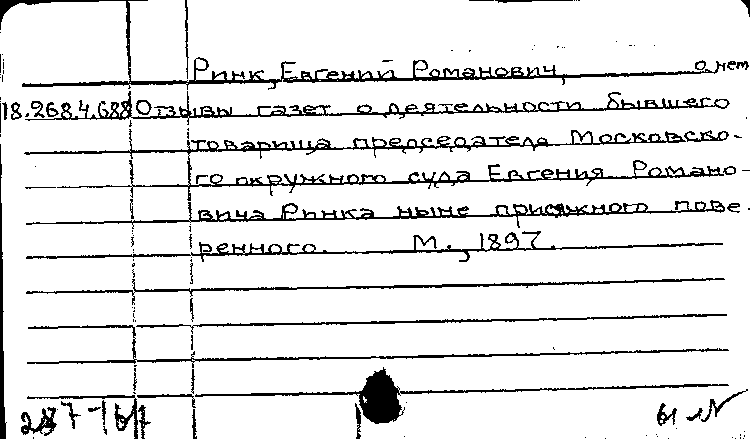 Ринк, Евгений Романович, о нем
18.268.4.688 Отзывы газет о деятельности бывшего
товарища председателя Московско-
го окружного суда Евгения Романо-
вича Ринка ныне присяжного пове-
ренного. М., 1897.